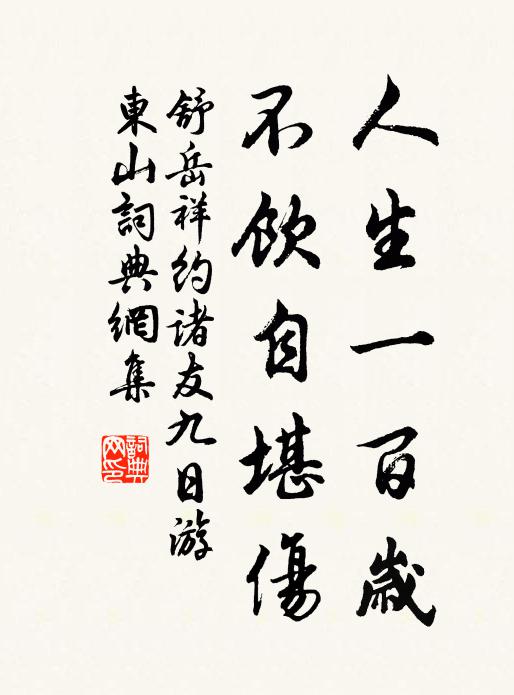 人生一百歲
不飲自堪傷
舒岳祥約諸友九日游
東山詞典網集
詞典網印